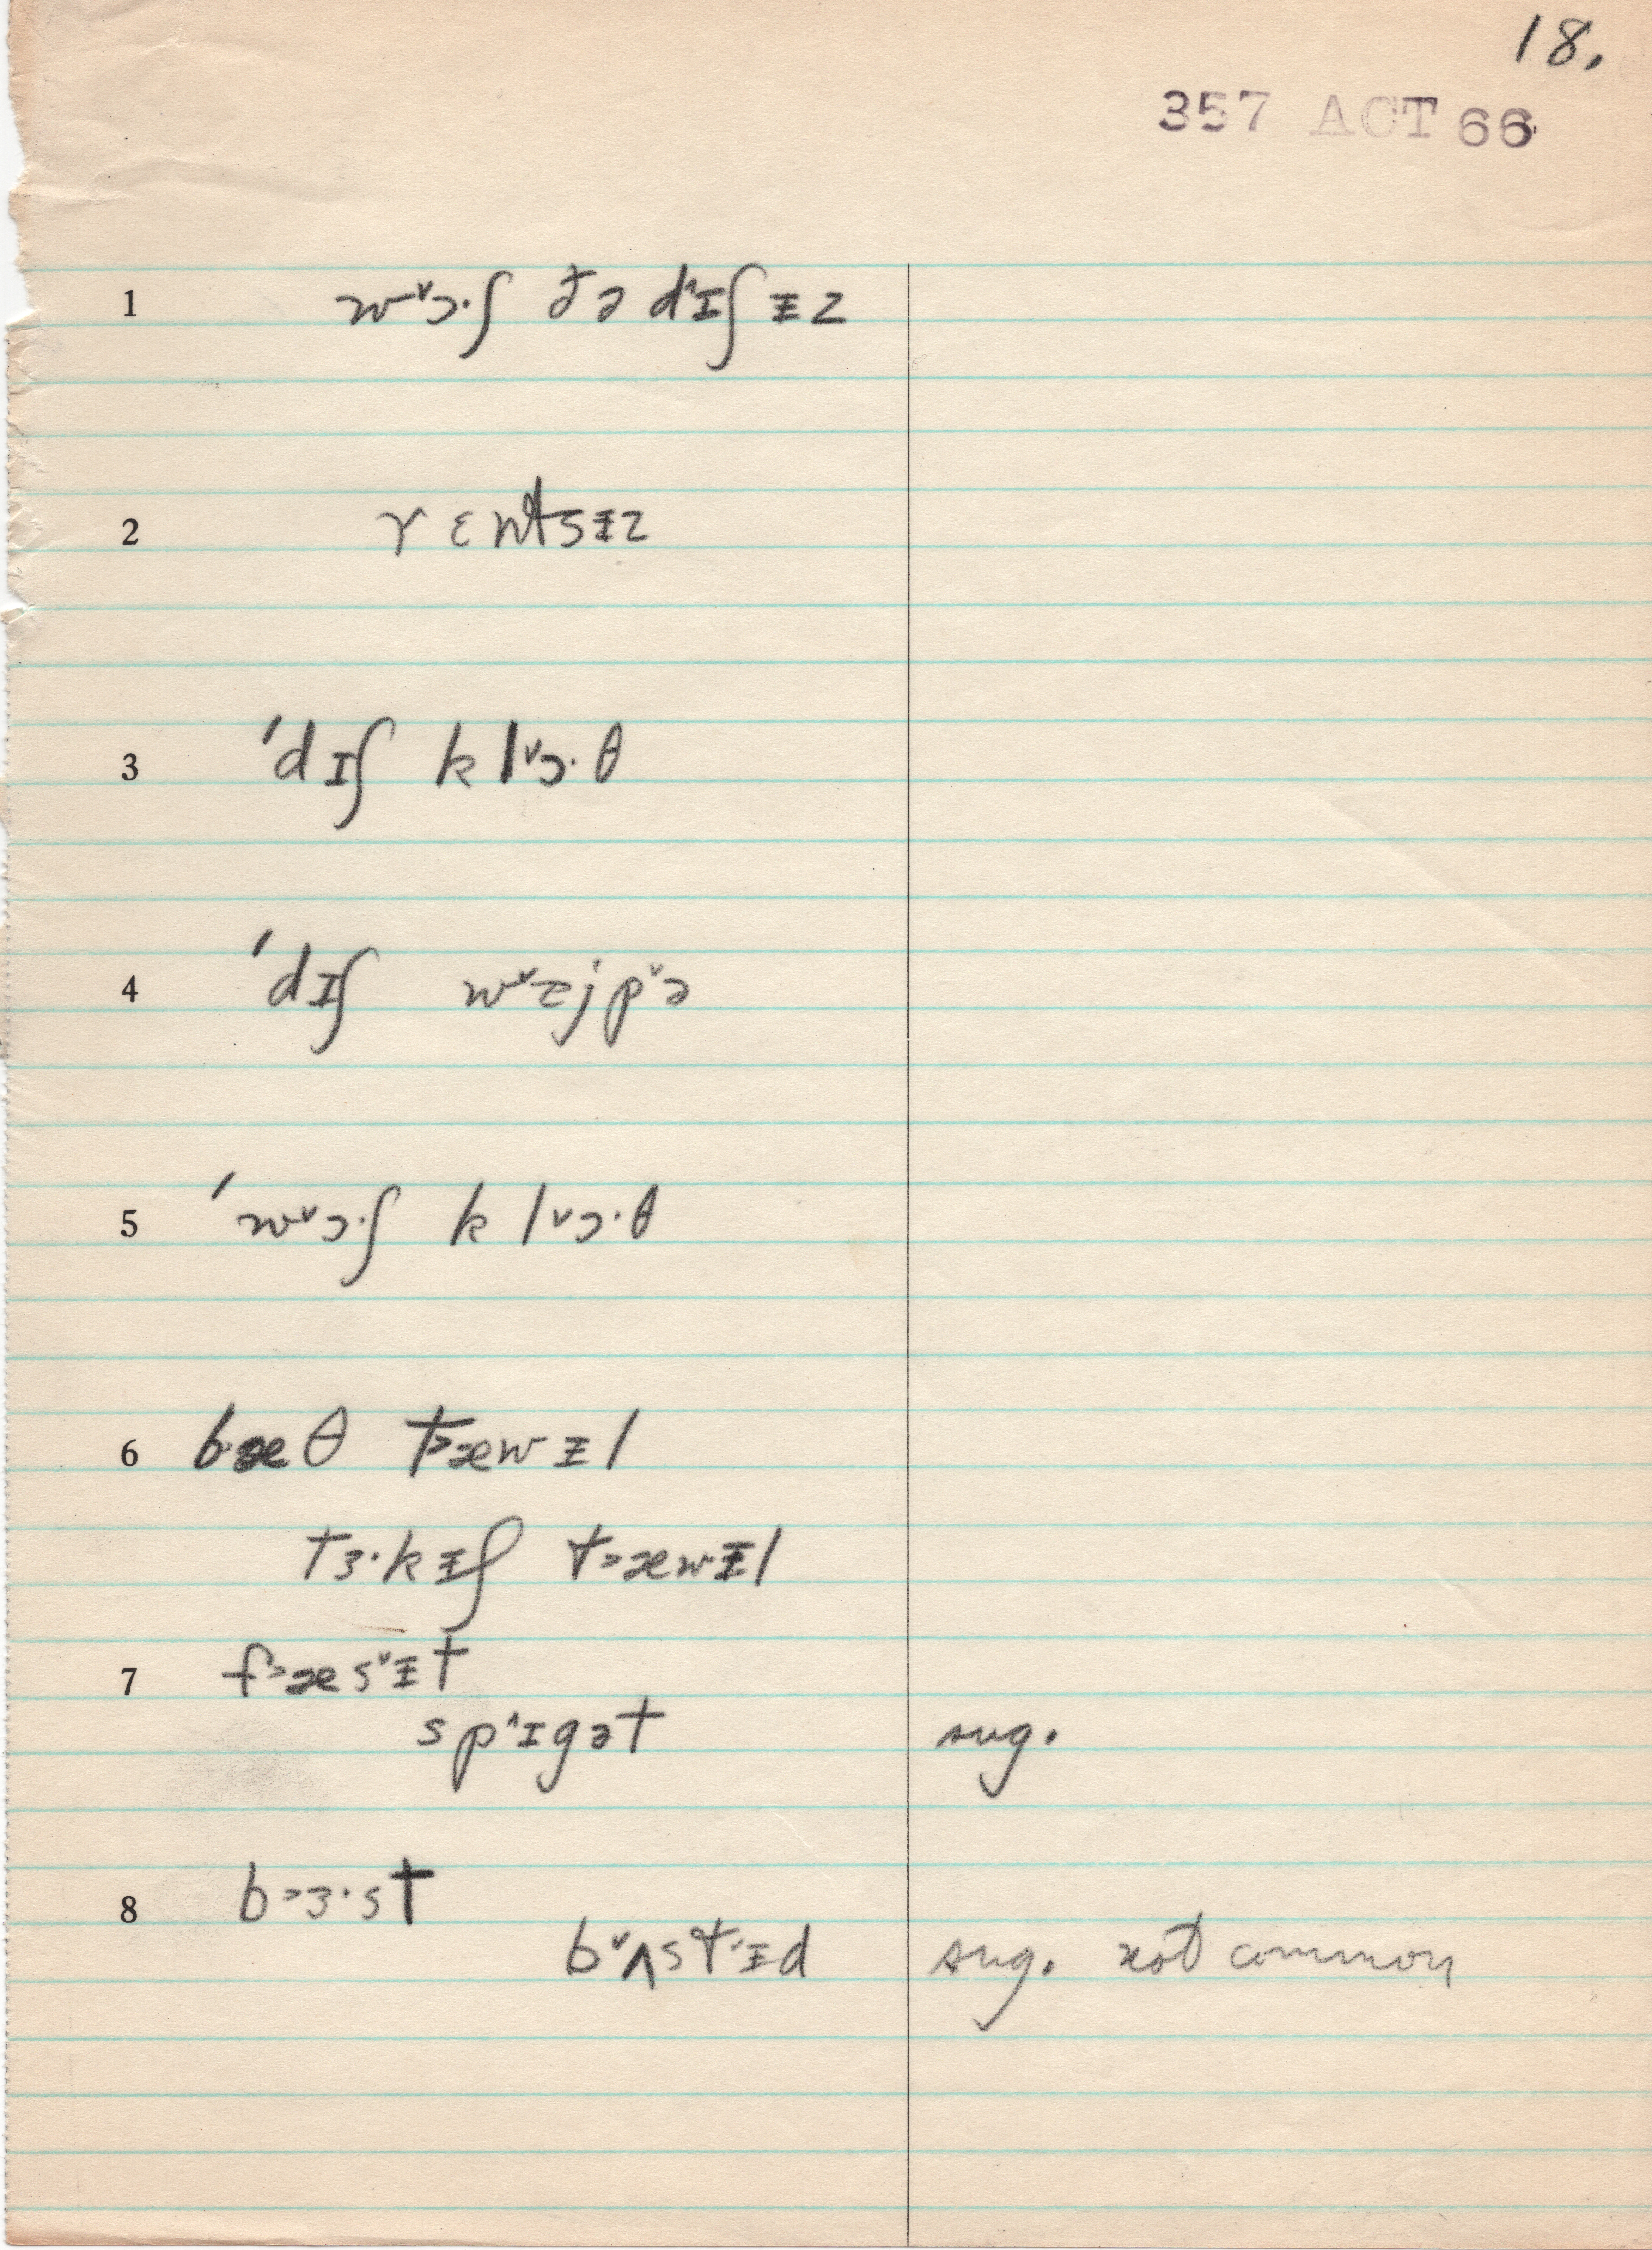 18.
357 ACT 66
1 wᵛɔ·ʃ ðə dˈɪʃɨz
2 rɛntsɨz
3 ˈdɪʃ klᵛɔ·θ
4 ˈdɪʃ wᵛejpᵛə
5 ˈwᵛɔ·ʃ klᵛɔ·θ
6 b˃æθ t˃æwɨl
tɜ·kɨʃ t˃æwɨl
7 f˃æsᵛɨt
sp^ɪgət sug.
8 b˃ɜ·st
bᵛʌstɨd sug. not common